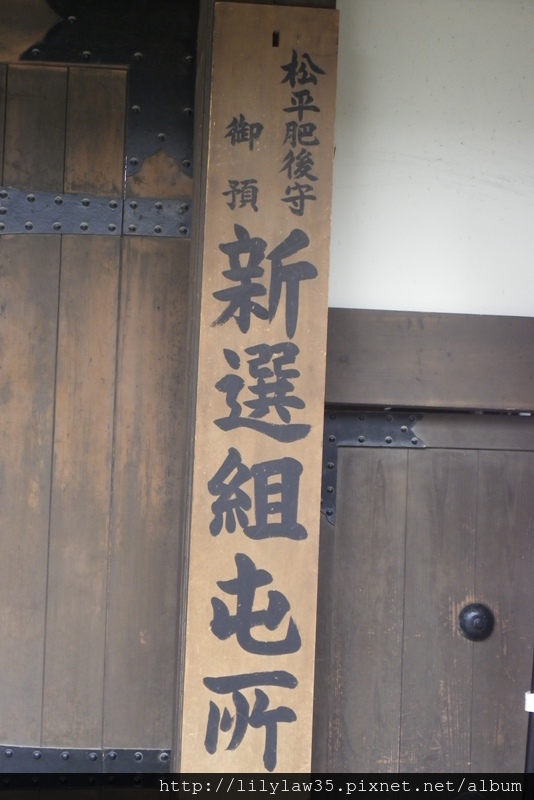 松平肥後守
御預
新選組屯所
http://lilylaw35.pixnet.net/album